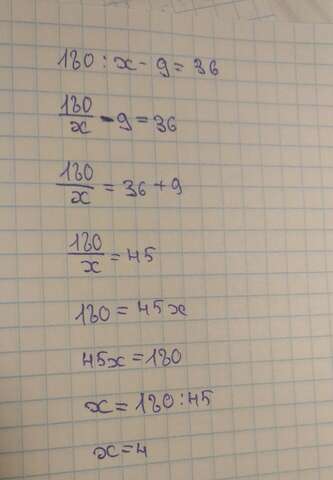 180 : x - 9 = 36
180/x - 9 = 36
180/x = 36 + 9
180/x = 45
180 = 45x
45x = 180
x = 180 : 45
x = 4